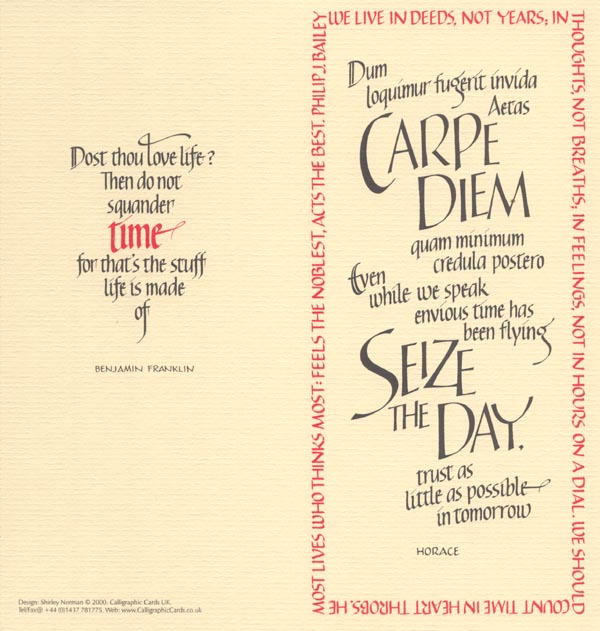 Dost thou love life?
Then do not
squander
time
for that's the stuff
life is made
of
BENJAMIN FRANKLIN
Design: Shirley Norman © 2000. Calligraphic Cards UK.
Tel/Fax@ +44 (0)1437 781775. Web: www.CalligraphicCards.co.uk
WE LIVE IN DEEDS, NOT YEARS; IN
THOUGHTS, NOT BREATHS; IN FEELINGS, NOT IN HOURS ON A DIAL. WE SHOULD
COUNT TIME IN HEART THROBS. HE
MOST LIVES WHO THINKS MOST: FEELS THE NOBLEST, ACTS THE BEST. PHILIP J. BAILEY
Dum
loquimur fugerit invida
Aetas
CARPE
DIEM
quam minimum
credula postero
Even
while we speak
envious time has
been flying
SEIZE
THE DAY,
trust as
little as possible
in tomorrow
HORACE